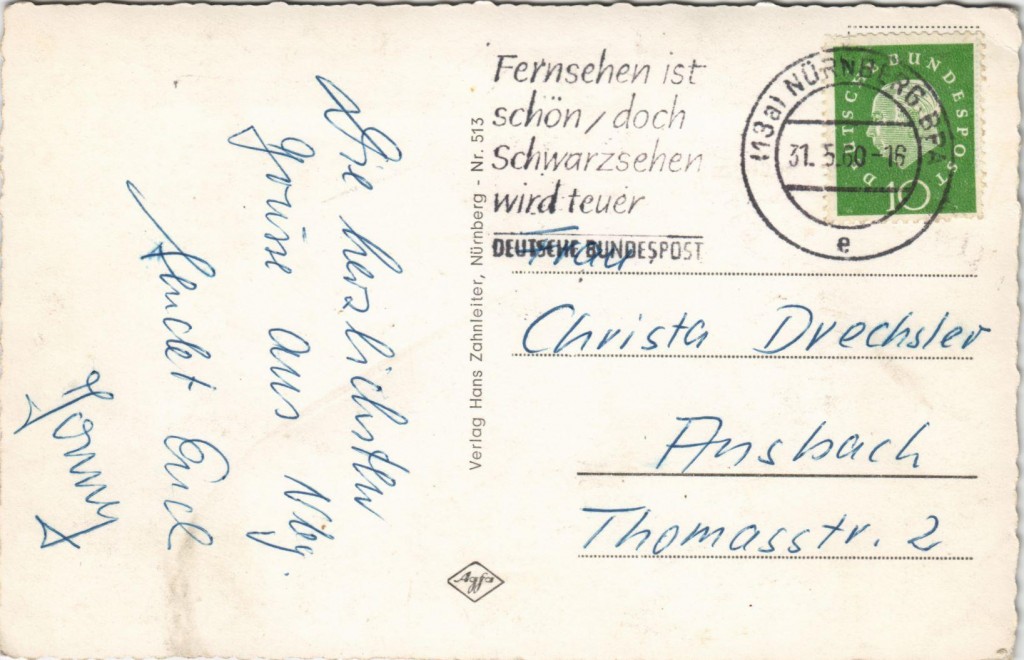 Die herzlichsten
Grüsse aus Nbg.
sendet Euch
Verlag Hans Zahnleiter, Nürnberg - Nr. 513
Agfa
Fernsehen ist
schön / doch
Schwarzsehen
wird teuer
DEUTSCHE BUNDESPOST
(13a) NÜRNBERG BPA
31. 5.60-16
e
DEUTSCHE BUNDESPOST
10
Frau
Christa Drechsler
Ansbach
Thomasstr. 2